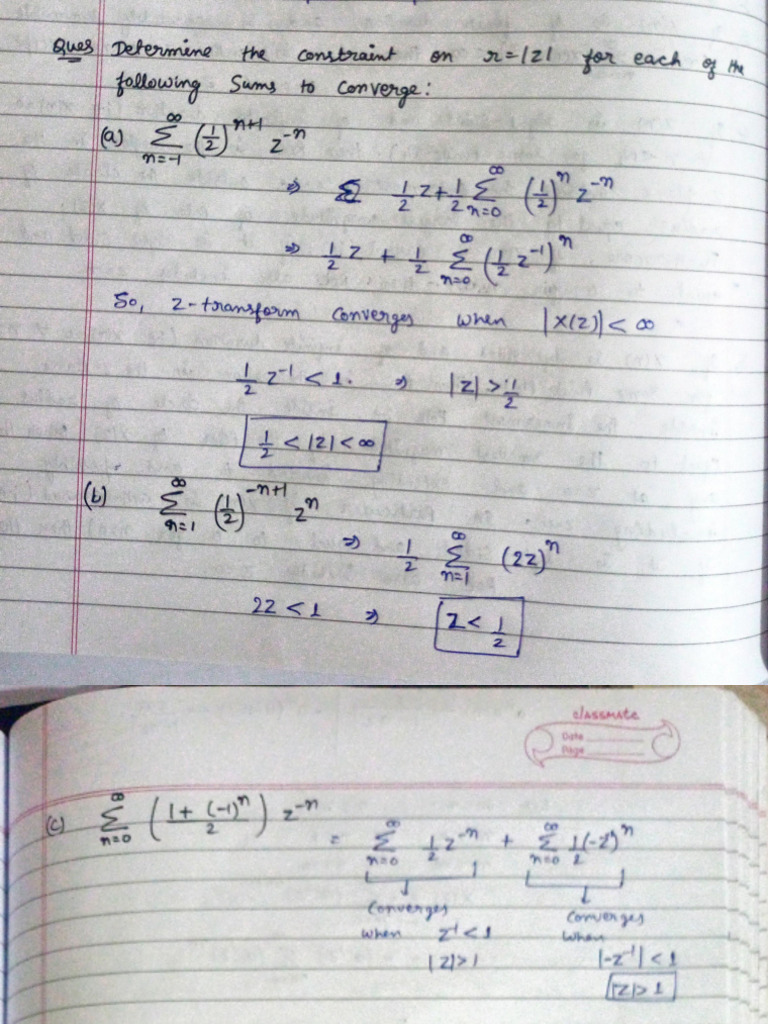 Ques Determine the constraint on r=|z| for each of the
following Sums to converge:
(a) ∞∑n=-1 (1/2)^(n+1) z^(-n)
⇒ 1/2 z + 1/2 ∞∑n=0 (1/2)^n z^(-n)
⇒ 1/2 z + 1/2 ∞∑n=0 (1/2 z^(-1))^n
So, z-transform converges when |X(z)| < ∞
1/2 z^(-1) < 1. ⇒ |z| > 1/2
1/2 < |z| < ∞
(b) ∞∑n=1 (1/2)^(-n+1) z^n
⇒ 1/2 ∞∑n=1 (2z)^n
2z < 1 ⇒ z < 1/2
classmate
Date
Page
(c) ∞∑n=0 ((1 + (-1)^n)/2) z^(-n)
= ∞∑n=0 1/2 z^(-n) + ∞∑n=0 1/2 (-z^1)^n
Converges when z^-1 < 1
|z| > 1
Converges when
|-z^(-1)| < 1
|z| > 1